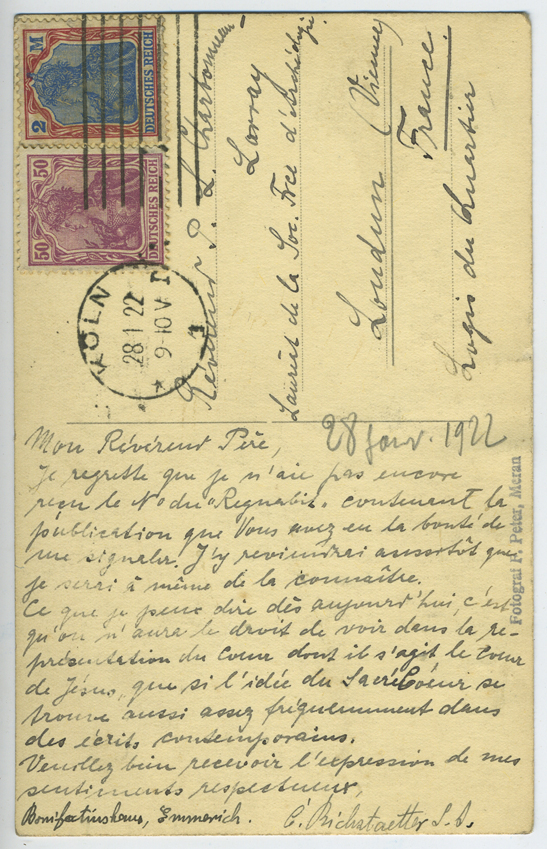 2 M
DEUTSCHES REICH
50 50
DEUTSCHES REICH
KÖLN
28 1 22
9-10 V
1
Révérend P. L. Charbonneau-
Lassay
Lauréat de la Soc. Frce d'Archéologie
Loudun (Vienne)
France.
Logis du Quartier
28 Janv. 1922
Mon Révérend Père,
Je regrette que je n'aie pas encore
reçu le No du "Regnabit" contenant la
publication que Vous avez eu la bonté de
me signaler. J'y reviendrai aussitôt que
je serai à même de la connaître.
Ce que je peux dire dès aujourd'hui, c'est
qu'on n'aura le droit de voir dans la re-
présentation du Cœur dont il s'agit le Cœur
de Jésus, que si l'idée du Sacré Cœur se
trouve aussi assez fréquemment dans
des écrits contemporains.
Veuillez bien recevoir l'expression de mes
sentiments respectueux,
Bonifatiushaus, Emmerich. C. Richstaetter S. J.
Fotograf P. Peter, Meran